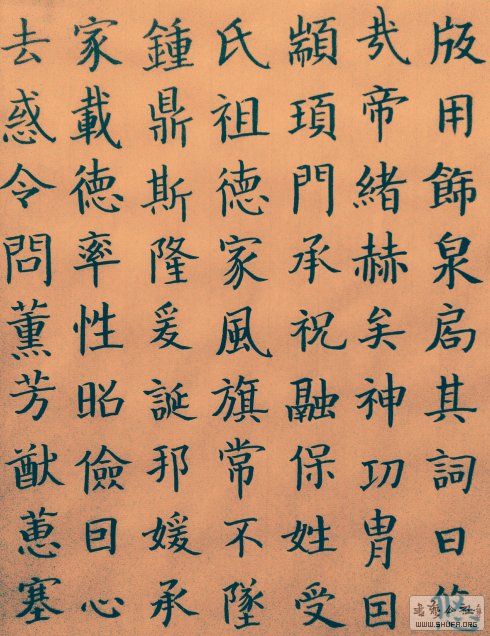 版用飾泉扃其詞曰悠
哉帝緒赫矣神功胄囙
顓頊門承祝融保姓受
氏祖德家風旗常不墜
鍾鼎斯隆爰誕邦媛承
家載德率性昭儉囙心
去惑令問薰芳猷蕙塞
WWW.SHUFA.ORG